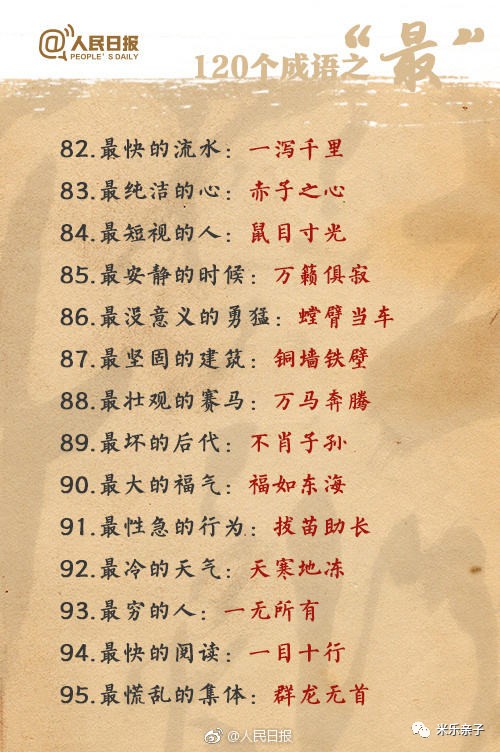 @人民日报
PEOPLE'S DAILY
120个成语之“最”
82.最快的流水：一泻千里
83.最纯洁的心：赤子之心
84.最短视的人：鼠目寸光
85.最安静的时候：万籁俱寂
86.最没意义的勇猛：螳臂当车
87.最坚固的建筑：铜墙铁壁
88.最壮观的赛马：万马奔腾
89.最坏的后代：不肖子孙
90.最大的福气：福如东海
91.最性急的行为：拔苗助长
92.最冷的天气：天寒地冻
93.最穷的人：一无所有
94.最快的阅读：一目十行
95.最慌乱的集体：群龙无首
@人民日报
米乐亲子